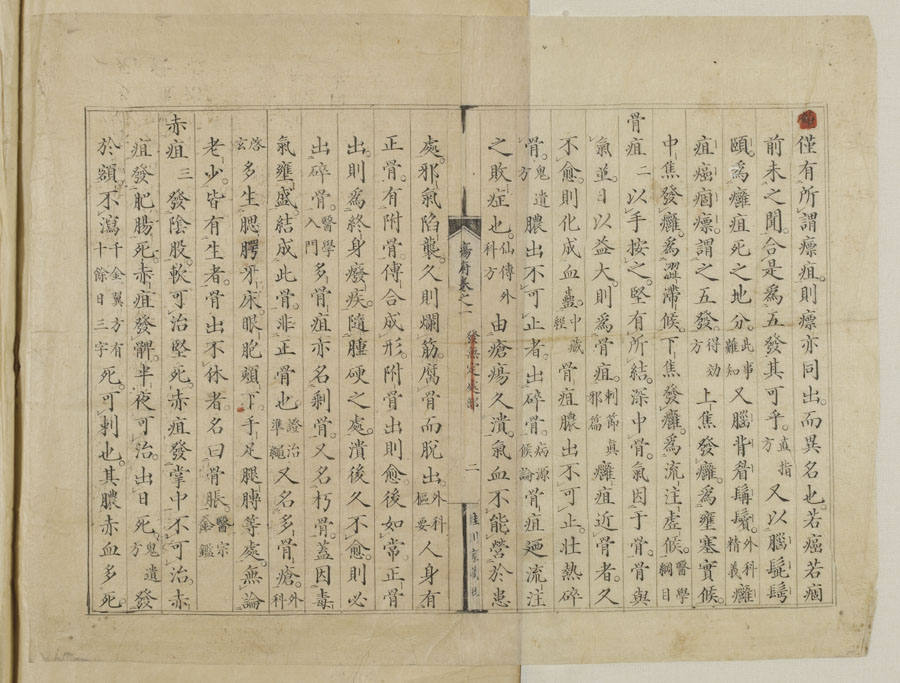 僅有所謂瘭疽則瘭亦同出而異名也若瘟若痼
前未之聞合是為五發其可乎直指方又以腦髭鬚
頤為癰疽死之地分此事難知又腦背眥鬍鬢外科精義癰
疽瘟痼瘭謂之五發得効方上焦發癰為壅塞實候
中焦發癰為澀滯候下焦發癰為流注虛候醫學綱目
骨疽二以手按之堅有所結深中骨氣因于骨骨與
氣並日以益大則為骨疽刺節真邪篇癰疽近骨者久
不愈則化成血蠱中藏經骨疽膿出不可止壯熱碎
骨鬼遺方膿出不可止者出碎骨病源候論骨疽廼流注
之敗症也仙傳外科方由瘡瘍久潰氣血不能營於患
瘍府卷之一
發無定處部
二
桂川家蔵
處邪氣陷襲久則爛筋腐骨而脫出外科樞要人身有
正骨有附骨傳合成形附骨出則愈後如常正骨
出則為終身癈疾隨腫硬之處潰後久不愈則必
出碎骨醫學入門多骨疽亦名剩骨又名朽骨蓋因毒
氣壅盛結成此骨非正骨也證治準繩又名多骨瘡外科
啓玄多生腮腭牙床眼胞頰下手足腿膊等處無論
老少皆有生者骨出不休者名曰骨脹醫宗金鑑
赤疽三發陰股軟可治堅死赤疽發掌中不可治赤
疽發肥腸死赤疽發髀半夜可治出日死鬼遺方發
於額不瀉千金翼方有十餘日三字死可刺也其膿赤血多死